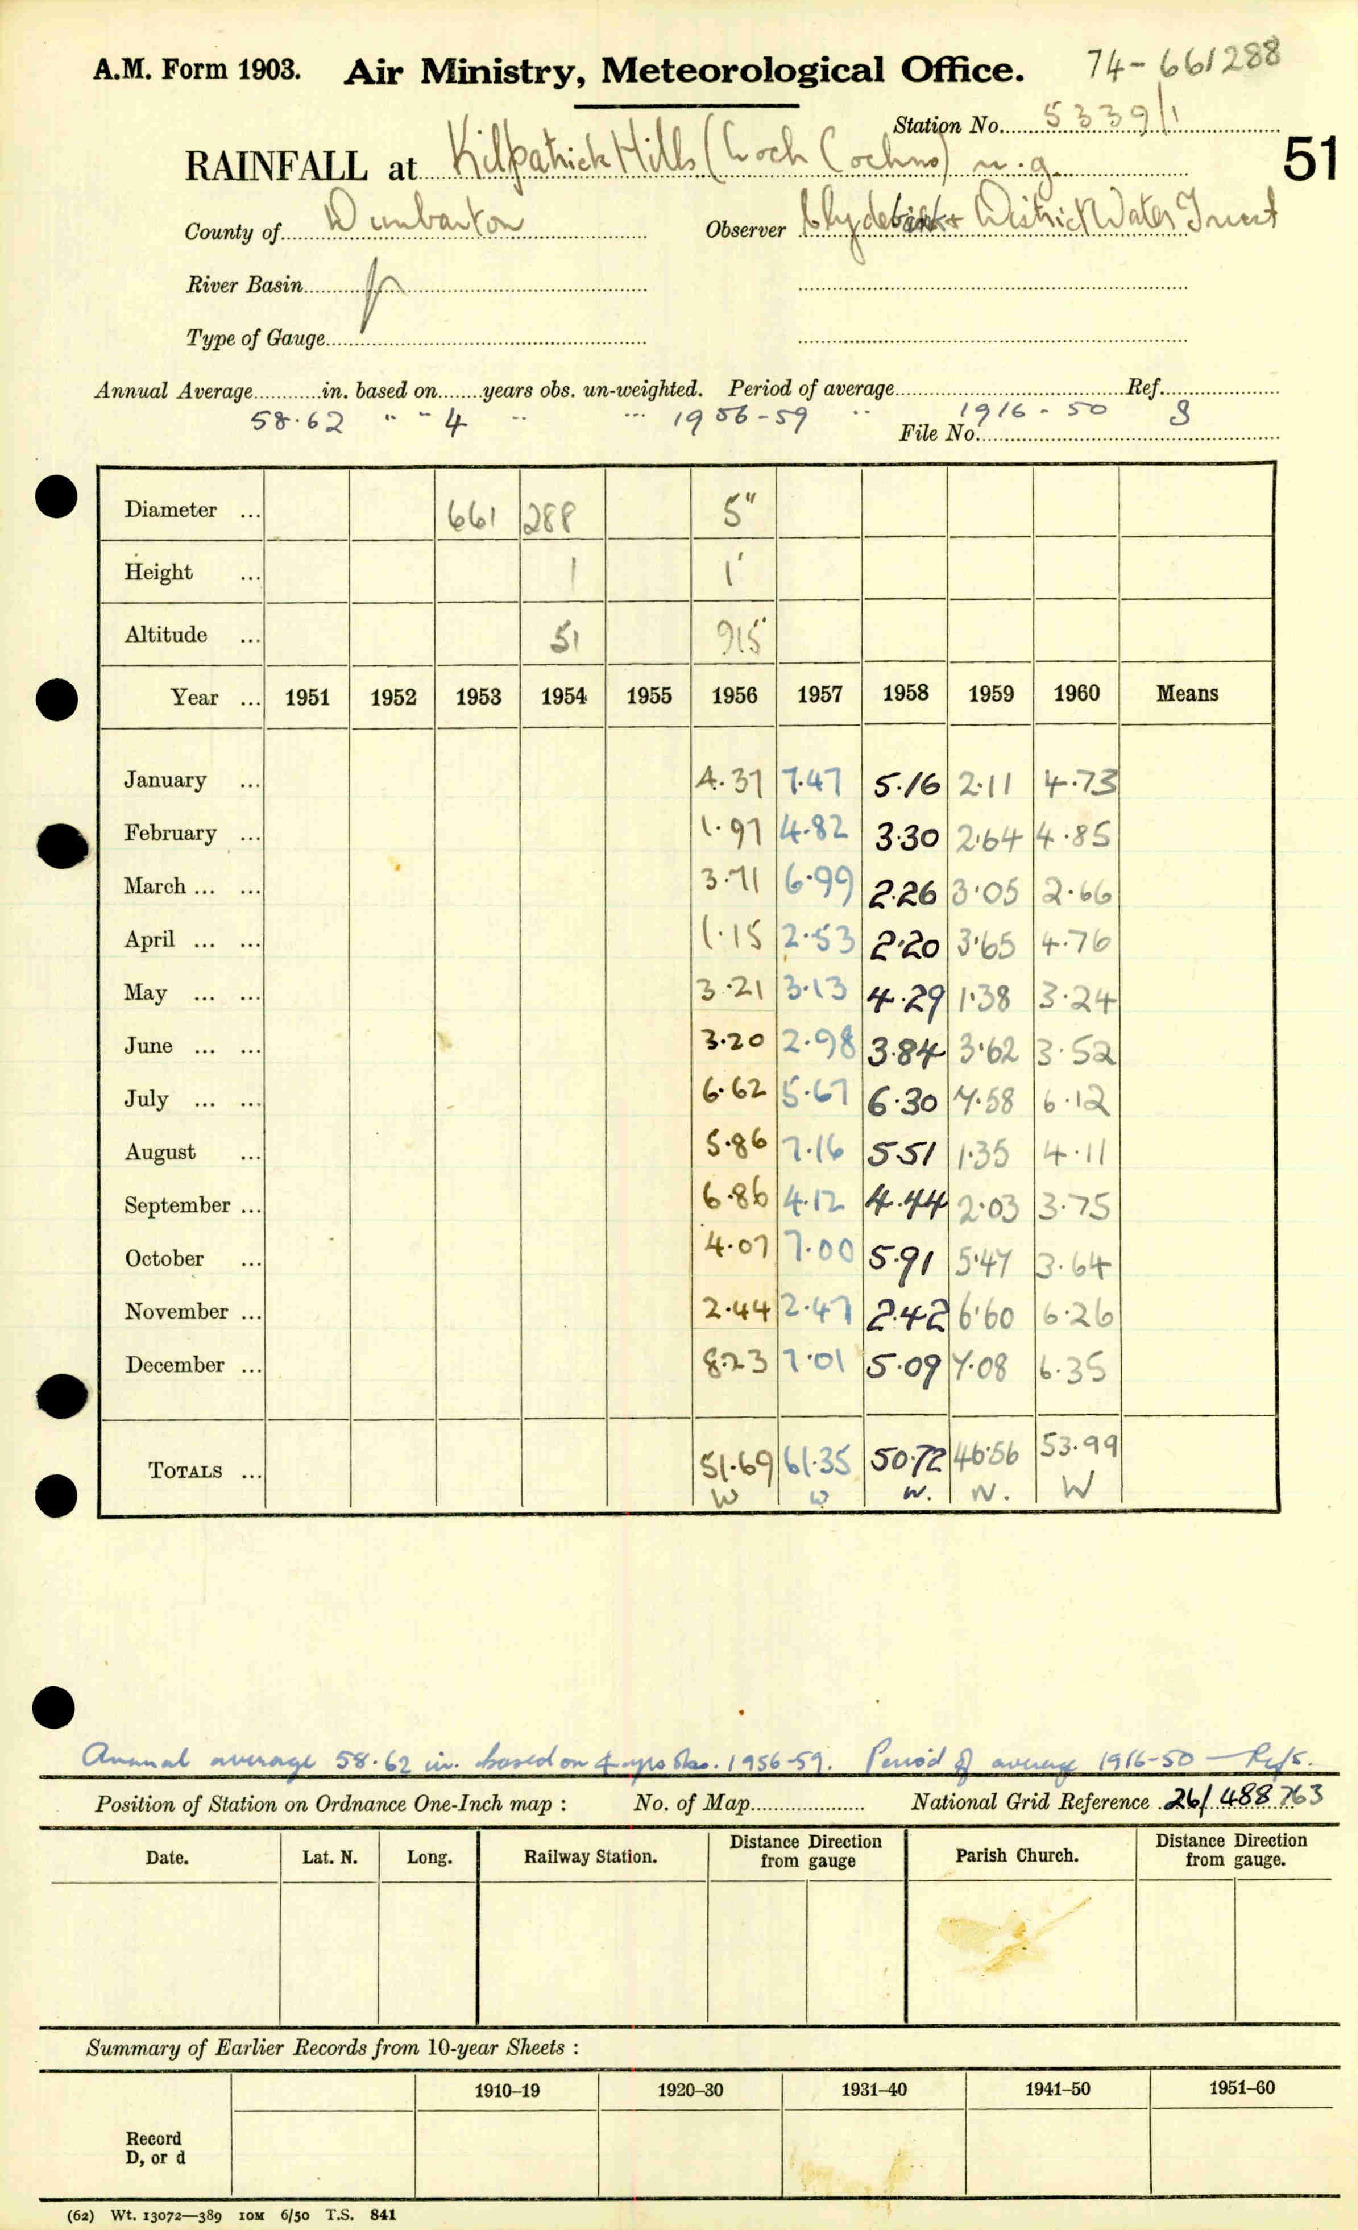 A.M. Form 1903. Air Ministry, Meteorological Office. 74-661288
Station No. 5339/1
51
RAINFALL at Kilpatrick Hills (Loch Cochno) m.g.
County of Dunbarton Observer Clydebank & District Water Trust
River Basin
Type of Gauge
Annual Average in. based on years obs. un-weighted. Period of average Ref.
58.62 " " 4 " " 1956-59 " 1916-50 S
File No.
Diameter ... 661 288 5"
Height ... 1 1'
Altitude ... 51 915'
Year ... 1951 1952 1953 1954 1955 1956 1957 1958 1959 1960 Means
January ... 4.37 7.47 5.16 2.11 4.73
February ... 1.97 4.82 3.30 2.64 4.85
March ... ... 3.71 6.99 2.26 3.05 2.66
April ... ... 1.15 2.53 2.20 3.65 4.76
May ... ... 3.21 3.13 4.29 1.38 3.24
June ... ... 3.20 2.98 3.84 3.62 3.52
July ... ... 6.62 5.67 6.30 7.58 6.12
August ... 5.86 7.16 5.51 1.35 4.11
September ... 6.86 4.12 4.44 2.03 3.75
October ... 4.07 7.00 5.91 5.47 3.64
November ... 2.44 2.47 2.42 6.60 6.26
December ... 8.23 7.01 5.09 7.08 6.35
TOTALS ... 51.69 61.35 50.72 46.56 53.99
W W W. W. W
Annual average 58.62 in. based on 4 yrs obs. 1956-59. Period of average 1916-50 — Ref S.
Position of Station on Ordnance One-Inch map : No. of Map National Grid Reference 26/488763
Date. Lat. N. Long. Railway Station. Distance Direction from gauge Parish Church. Distance Direction from gauge.
Summary of Earlier Records from 10-year Sheets :
1910–19 1920–30 1931–40 1941–50 1951–60
Record
D, or d
(62) Wt. 13072—389 10M 6/50 T.S. 841